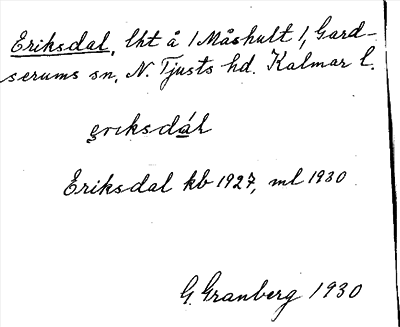 Eriksdal, lht å 1 Måshult 1, Gard-
serums sn, N. Tjusts hd. Kalmar l.
ęriksdál
Eriksdal kb 1927, ml 1930
G. Granberg 1930